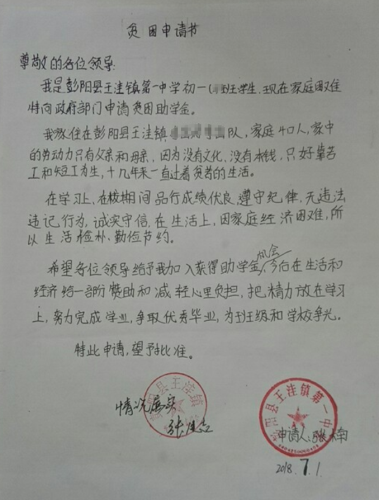 贫困申请书
尊敬的各位领导:
我是彭阳县王洼镇第一中学初一(班学生,现在家庭困难
特向政府部门申请贫困助学金。
我家住在彭阳县王洼镇队,家庭4口人,家中
的劳动力只有父亲和母亲,因为没有文化,没有本钱,只好靠苦
工和短工为生,十几年来一直过着贫苦的生活。
在学习上,在校期间品行成绩优良,遵守纪律,无违法
违记行为,诚实守信,在生活上,因家庭经济困难,所
以生活检朴、勤俭节约。
机会
希望各位领导给予我加入获得助学金,今后在生活和
经济给一部分赞助和减轻心里负担,把精力放在学习
上,努力完成学业,争取优秀毕业,为班级和学校争光。
特此申请,望予批准。
情况属实
县王洼镇
彭阳县王洼镇第一中
申请人:
2018.7.1